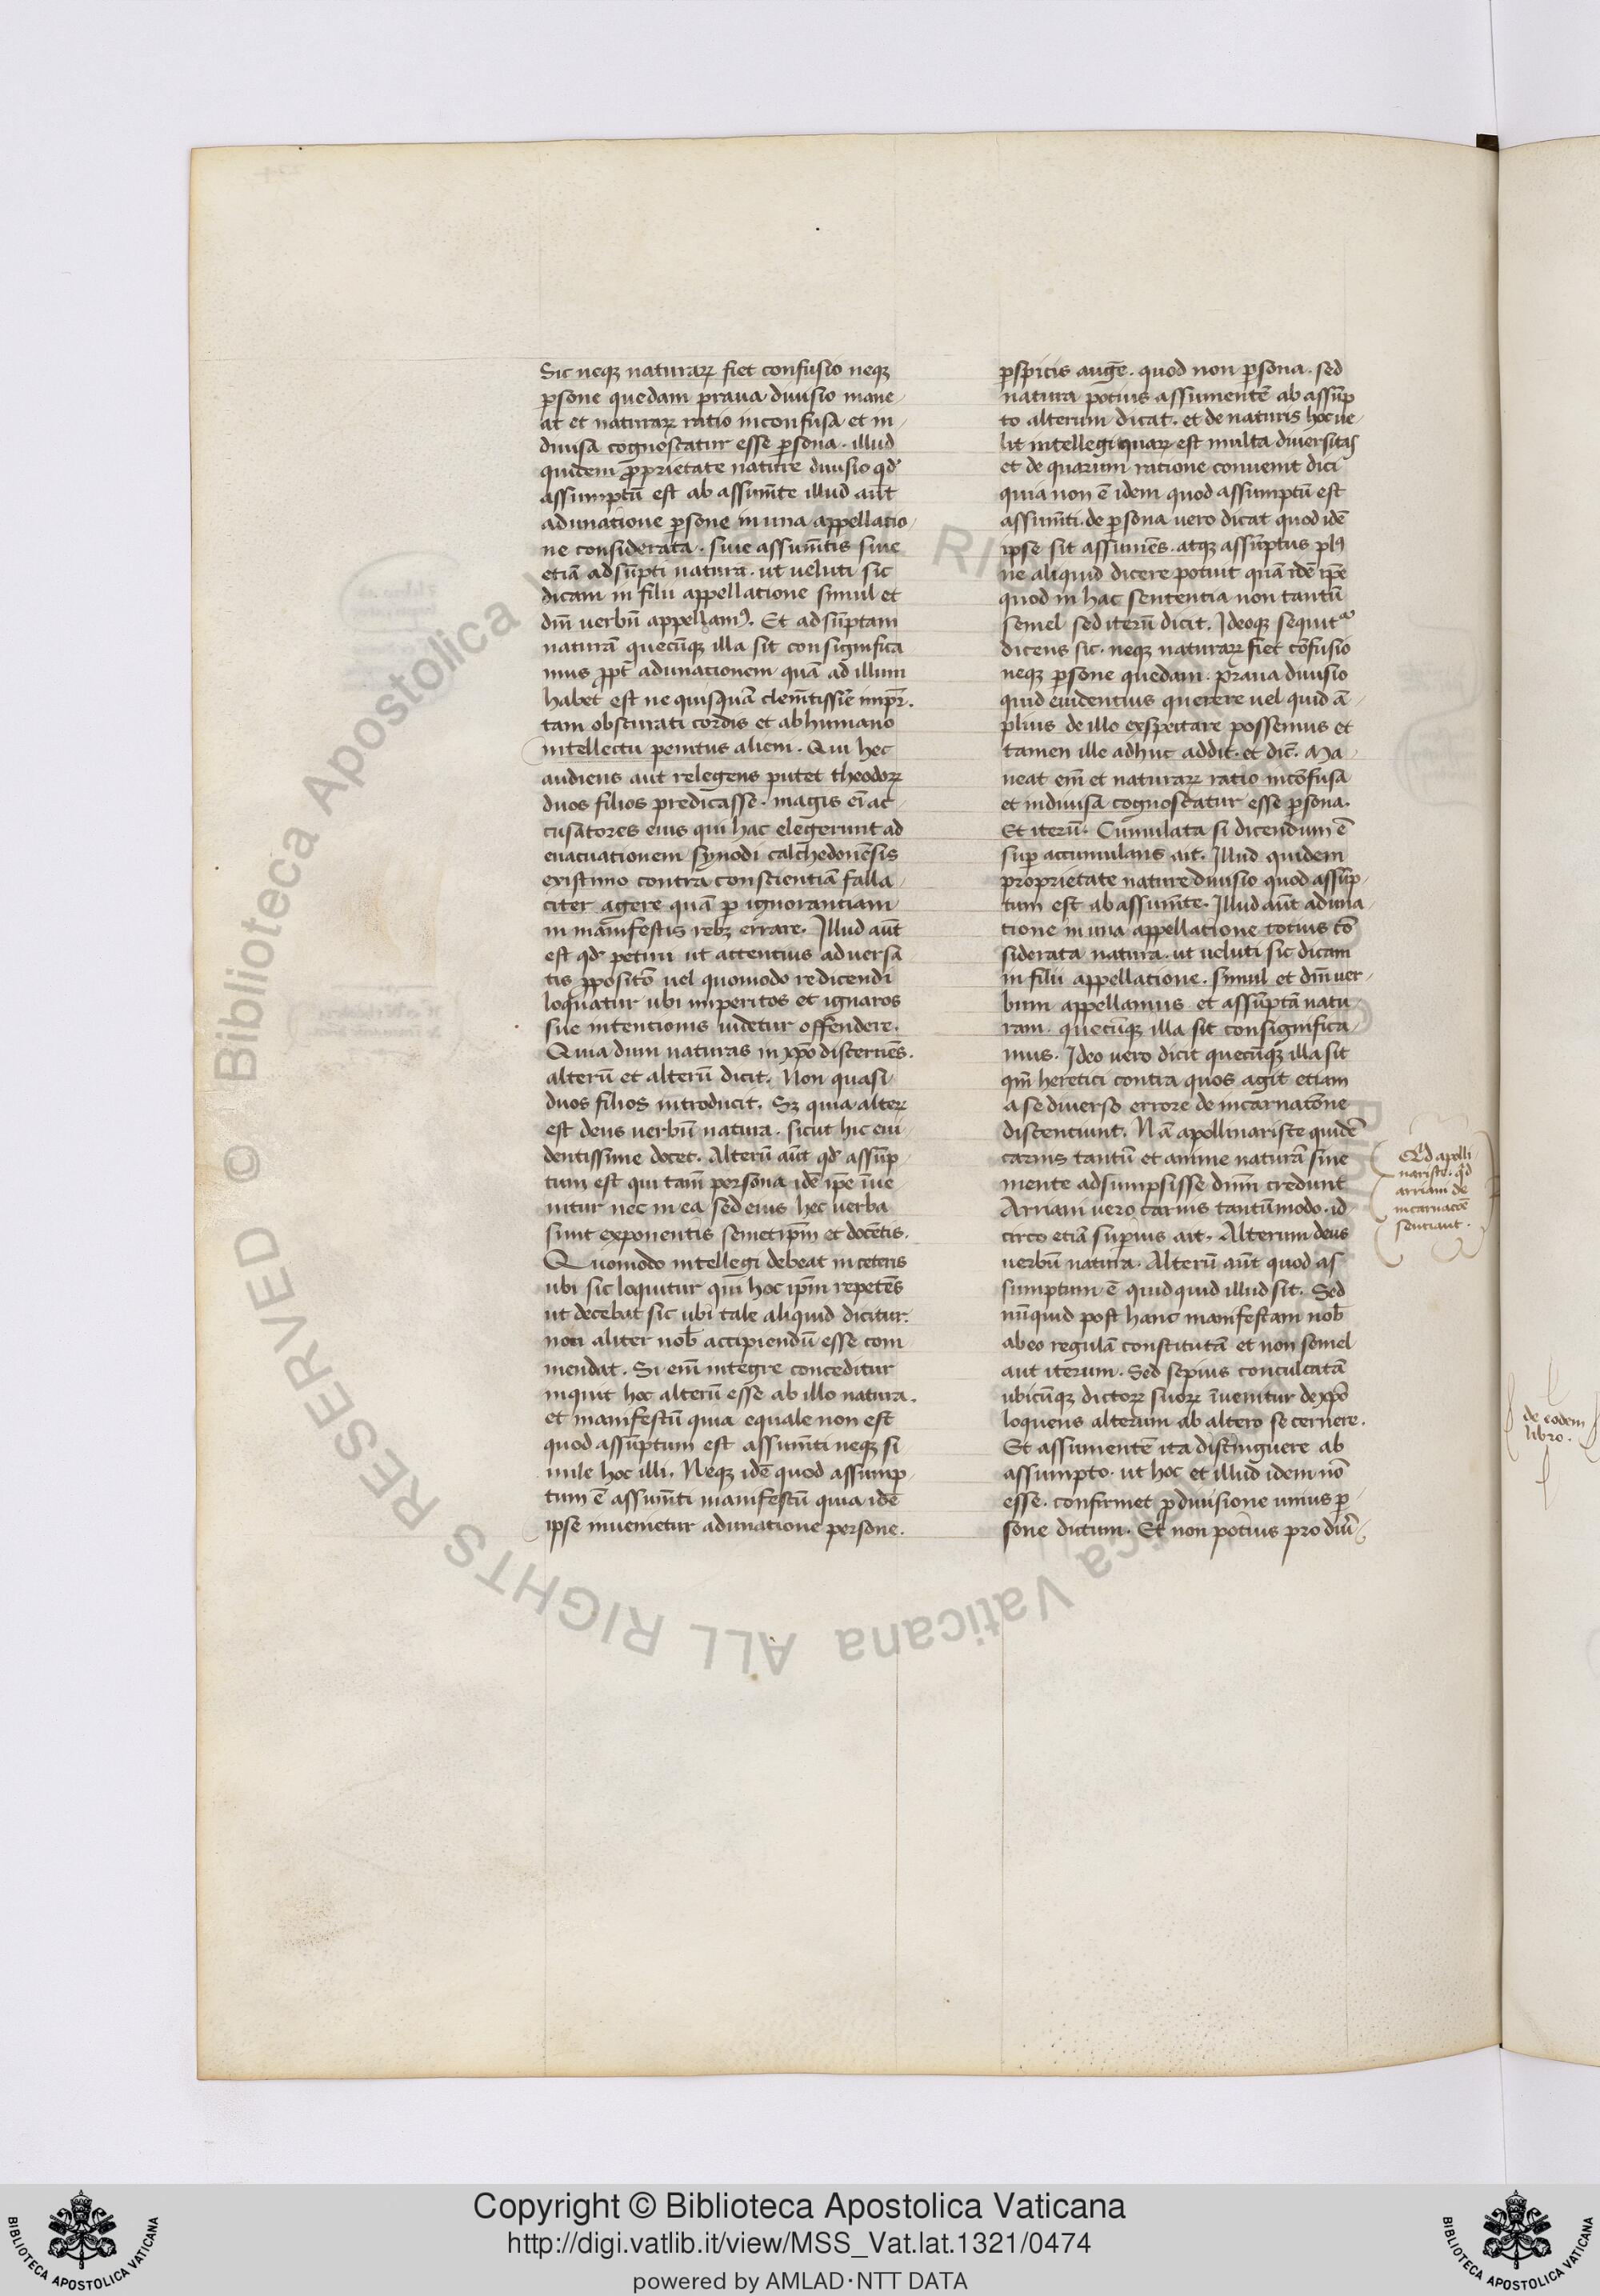 Sic neqꝫ naturaꝝ fiet confusio neqꝫ
ꝑsone quedam praua diuisio mane
at et naturaꝝ ratio inconfusa et in
diuisa cognoscatur esse ꝑsona. illud
quidem ꝓprietate nature diuisio qd
assumptū est ab assumēte illud aūt
adunatione ꝑsone in una appellatio
ne considerata. siue assumētis siue
etiā adsūpti natura. ut ueluti sic
dicam in filii appellatione simul et
dm̄ uerbū appellamꝰ. Et adsūptam
naturā quecūqꝫ illa sit consignifica
mus ꝓpt̄ adunationem quā ad illum
habet est ne quisquā clemētissīe impr̄.
tam obscurati cordis et ab humano
intellectu penitus alieni. Qui hec
audiens aut relegens putet theodoꝝ
duos filios predicasse. magis eī ac
cusatores eius qui hac elegerunt ad
euacuationem synodi calchedonēsis
existimo contra conscientiā falla
citer agere quā ꝑ ignorantiam
in manifestis rebꝫ errare. Illud aūt
est qd petini ut attentius aduersā
tis ꝓpositō uel quomodo redicendi
loquatur ubi imperitos et ignaros
sue intentionis uidetur offendere.
Quia dum naturas in xp̄o discernēs.
alterū et alterū dicit. Non quasi
duos filios introducit. Sꝫ quia alteꝝ
est deus uerbū natura. sicut hic eui
dentissime docet. Alterū aūt qd assūp
tum est qui tam̄ persona idē ip̄e īue
nitur nec in ea sed eius hec uerba
sunt exponentis semetip̄m et docētis.
Quomodo intellegi debeat in ceteris
ubi sic loquitur qui hoc ip̄m repetēs
ut decebat sic ubi tale aliquid dicitur.
non aliter nob̄ accipiendū esse com
mendat. Si eni̅ integre conceditur
inquit hoc alterū esse ab illo natura.
et manifestū quia equale non est
quod assūptum est assumēti neqꝫ si
mile hoc illi. Neqꝫ idē quod assump
tum ē assumēti manifestū quia idē
ipse inuenietur adunatione persone.
ꝑspicis auḡe. quod non ꝑsona. sed
natura potius assumentē ab assūp
to alterum dicat. et de naturis hoc ue
lit intellegi quaꝝ est multa diuersitas
et de quarum ratione conuenit dici
quia non ē idem quod assumptū est
assumēti. de ꝑsona uero dicat quod idē
ipse sit assumēs. atqꝫ assūptus plꝰ
ne aliquid dicere potuit quā idē ip̄e
quod in hac sententia non tantū
semel sed iterū dicit. Ideoqꝫ sequit̄
dicens sic. neqꝫ naturaꝝ fiet cōfusio
neqꝫ ꝑsone quedam praua diuisio
quid euidentius querere uel quid ā
plius de illo exspectare possemus et
tamen ille adhuc addit. et dic̄. Ma
neat eni̅ et naturaꝝ ratio incōfusa
et indiuisa cognoscatur esse ꝑsona.
Et iterū. Cumulata si dicendum ē
suꝑ accumulans ait. Illud quidem
proprietate nature diuisio quod assūp
tum est ab assumēte. Illud aūt aduna
tione in una appellatione totius cō
siderata natura. ut ueluti sic dicam
in filii appellatione. simul et dm̄ uer
bum appellamus et assūptā natu
ram. quecūqꝫ illa sit consignifica
mus. Ideo uero dicit quecūqꝫ illa sit
qm̄ heretici contra quos agit etiam
a se diuerso errore de incarnatōne
discentiunt. Nā apollinariste quidē
carnis tantū et anime naturā sine
mente adsumpsisse dnm̄ credunt
Arriani uero carnis tantūmodo. id
circo etiā suꝑius ait. Alterum deus
uerbū natura. Alterū aūt quod as
sumptum ē quidquid illud sit. Sed
nūquid post hanc manifestam nob̄
ab eo regulā constitutā et non semel
aut iterum. Sed sepius conculcatā
ubicūqꝫ dictoꝝ suoꝝ īuenitur de xp̄o
loquens alterum ab altero secernere.
Et assumentē ita distinguere ab
assumpto. ut hoc et illud idem nō
esse. confirmet ꝑ diuisione unius ꝑ
sone dictum. Et non potius pro diui̅
Qd apolli
nariste. qd
arriani de
incarnacōe
sentiant.
de eodem
libro.
Copyright © Biblioteca Apostolica Vaticana
http://digi.vatlib.it/view/MSS_Vat.lat.1321/0474
powered by AMLAD·NTT DATA
BIBLIOTECA APOSTOLICA VATICANA
BIBLIOTECA APOSTOLICA VATICANA